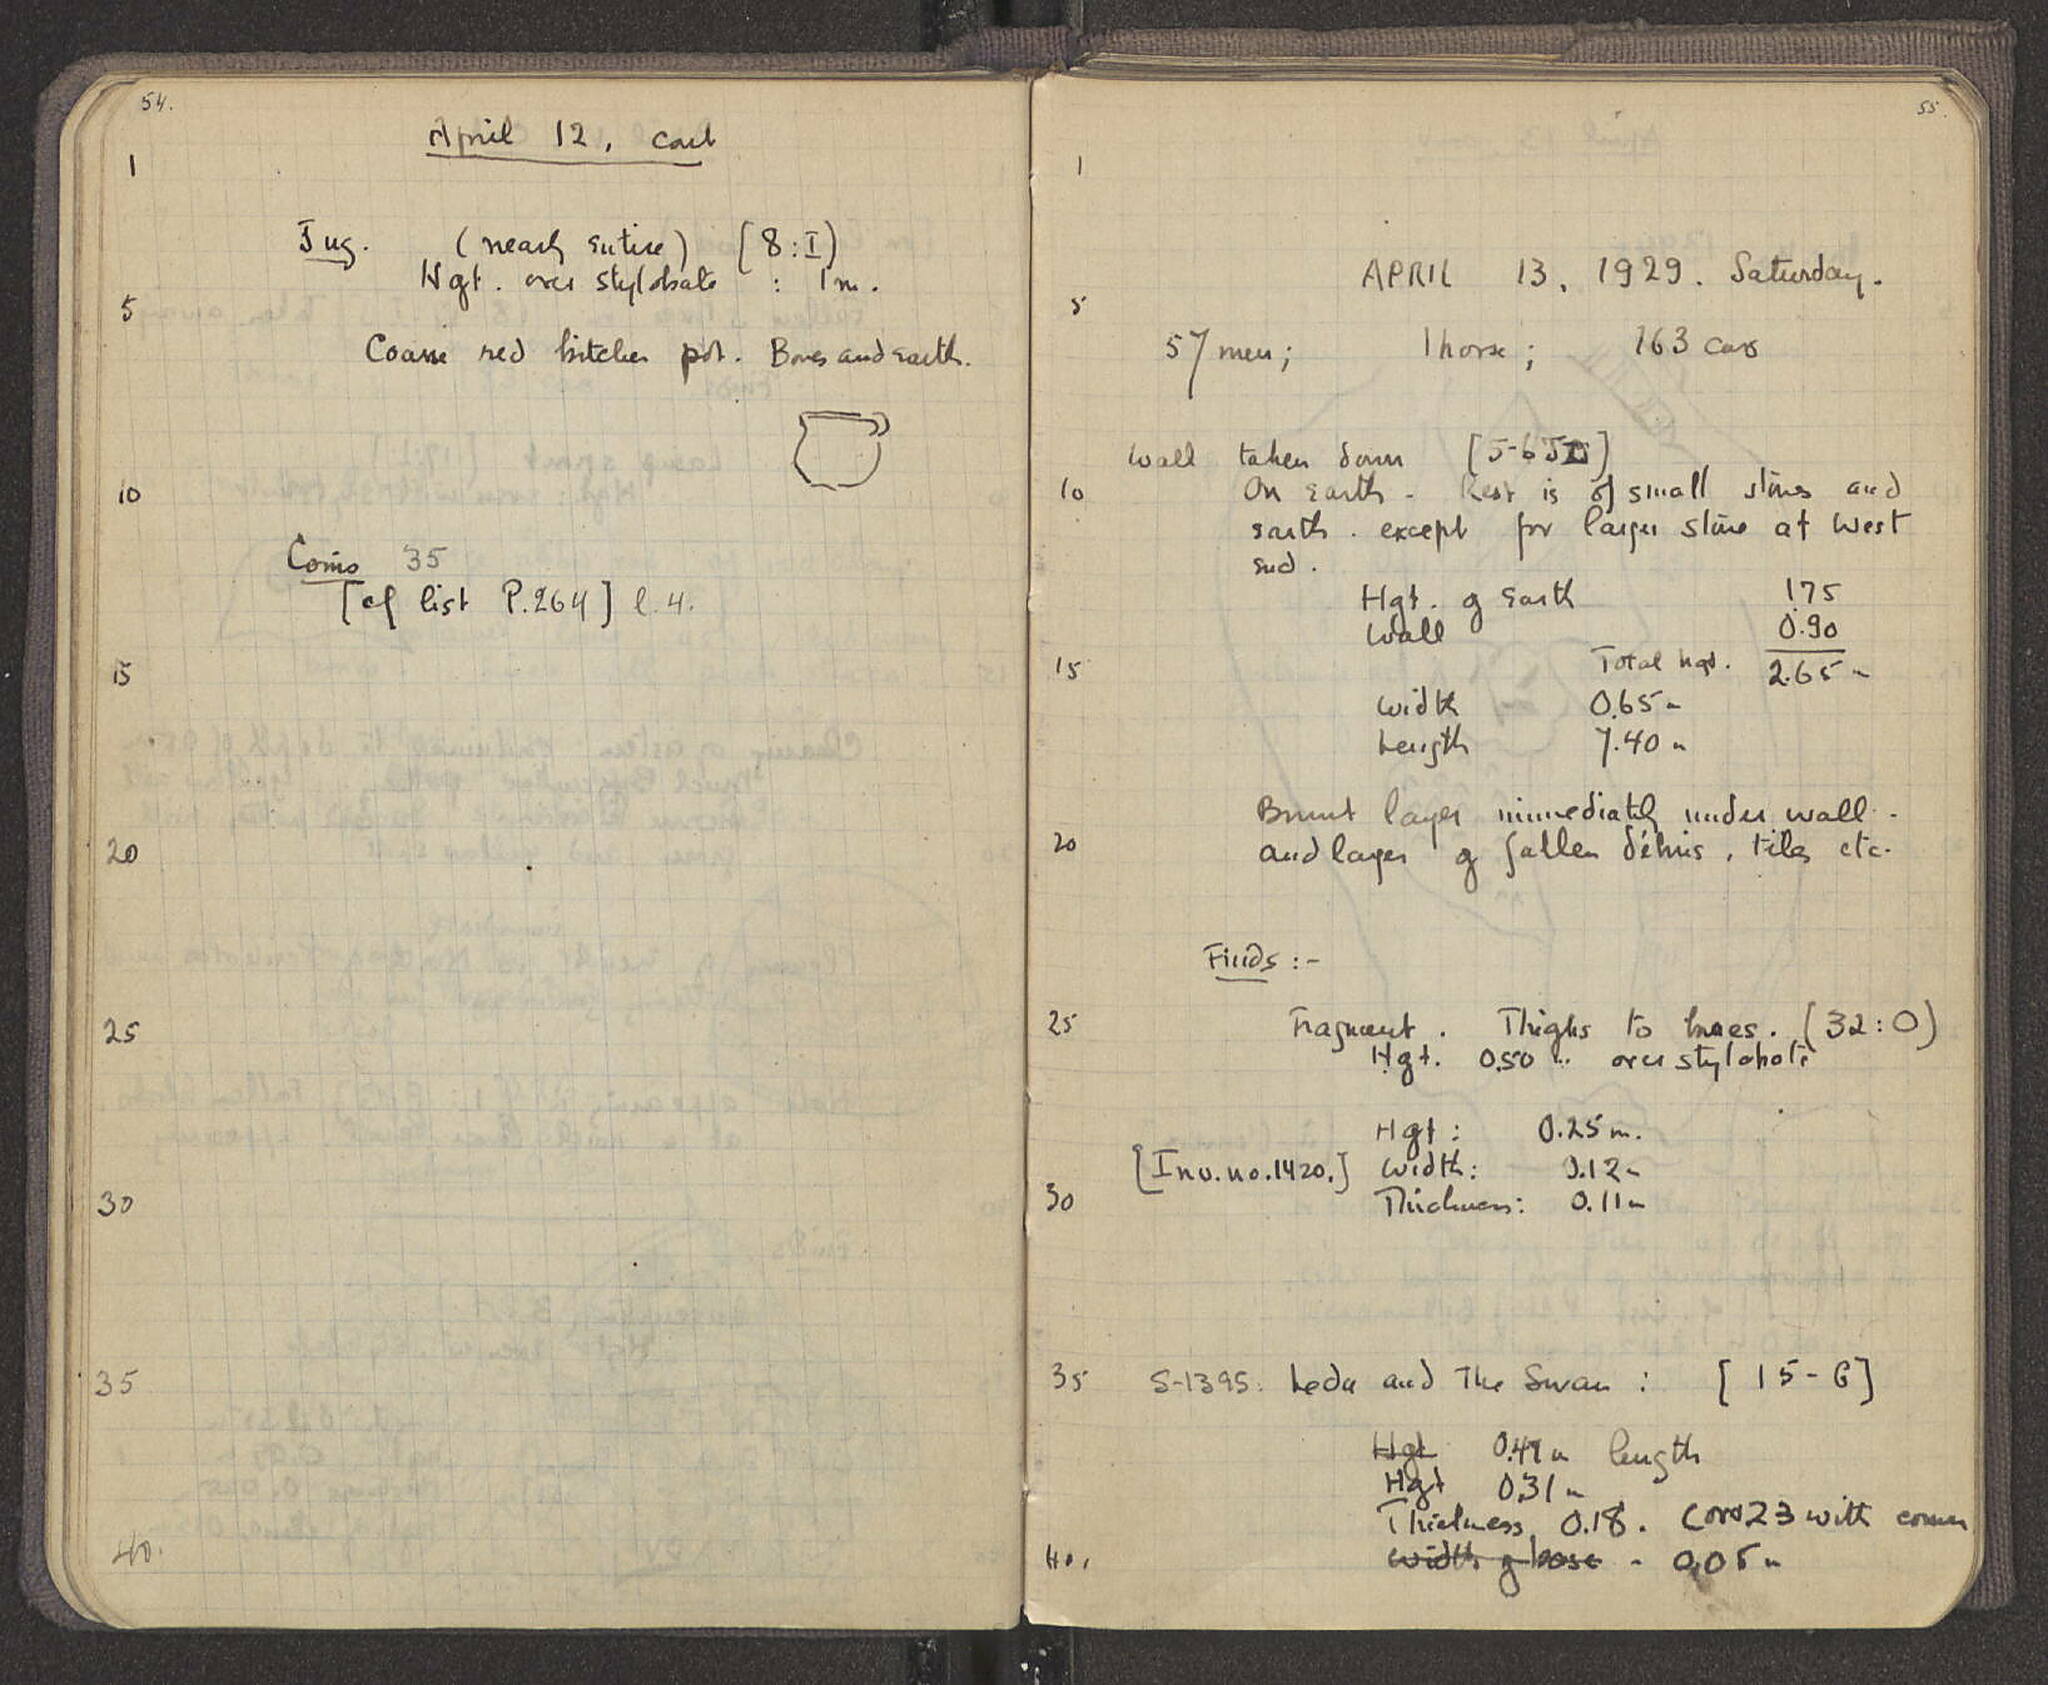 54.
April 12, cont
1
Jug. (nearly entire) [8:I]
Hgt. over stylobate : 1m.
5
Coarse red kitchen pot. Bones and earth.
10
Coins 35
[cf list P.264] l.4.
15
20
25
30
35
40.
55.
1
APRIL 13, 1929. Saturday.
5
57 men; 1 horse; 163 cars
Wall taken down
10 On earth. Rest is of small stones and
earth. except for larger stone at West
end.
Hgt. of Earth 1.75
Wall 0.90
15 Total hgt. 2.65 m
Width 0.65 m
Length 7.40 m
Burnt layer immediately under wall.
20 and layer of fallen débris, tiles etc.
Finds:-
25 Fragment. Thighs to knees. (32:O)
Hgt. 0.50 m over stylobate
Hgt: 0.25 m.
[Inv.no.1420.] Width: 0.12 m
30 Thickness: 0.11 m
35 S-1395: Leda and The Swan: [15-G]
Hgt 0.47 m length
Hgt 0.31 m
Thickness 0.18. with
40. Width of base - 0.05 m